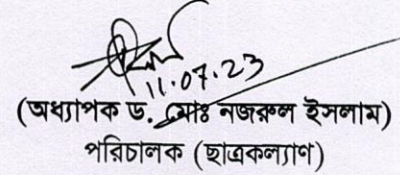 11.07.23
(অধ্যাপক ড. মোঃ নজরুল ইসলাম)
পরিচালক (ছাত্রকল্যাণ)